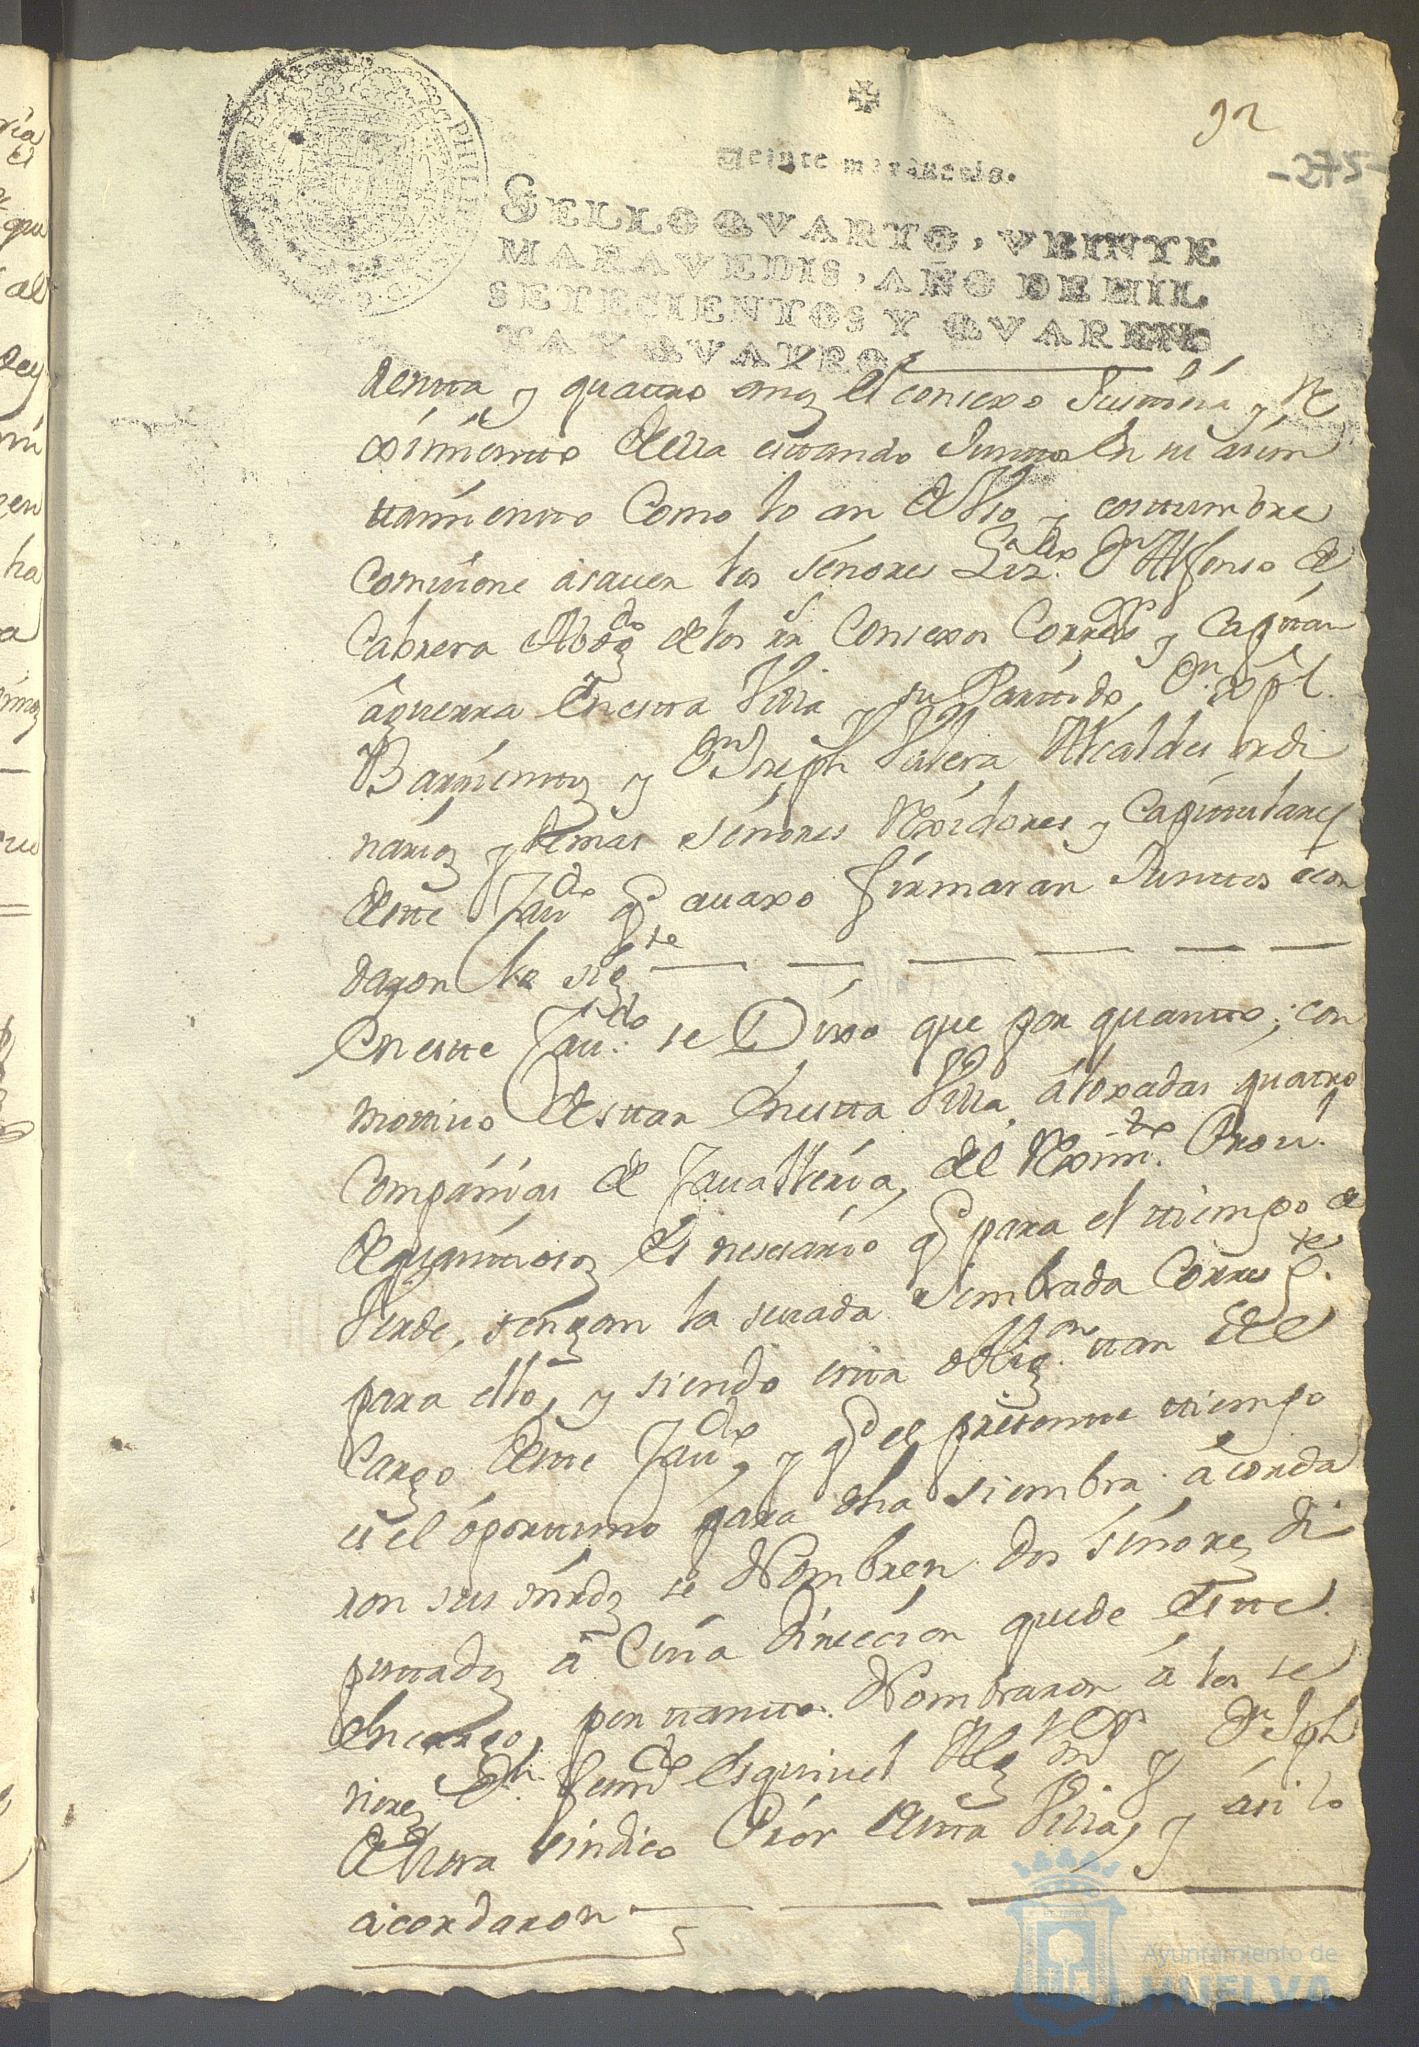 92
-275-
Veinte maravedis.
SELLO QVARTO, VEINTE
MARAVEDIS, AÑO DE MIL
SETECIENTOS Y QVAREN
TA Y QVATRO
y quatro el consexo Justicia y Re
ximiento della estando Juntos En su aiun
tamiento Como lo an de Vso y costumbre
Combiene asauer los señores Lizdo. Dn Alfonso de
Cabrera Abogdo de los rrs Consexos Correxor y Capitan
aguerra En esta Villa y su Partido, Dn. xptl.
Barrientos y Dn Joseph Valera Alcaldes ordi
narios y demas señores Rexidores y Capitulares
deste Caudo qe auaxo firmaran Juntos acor
daron lo sigte
En este Cau.do se Dixo que por quanto, con
motiuo destar En esta Villa aloxadas quatro
Compañias de Cauallería, del Reximto. Prou.
de quantiosos Es nesesario qe para el tiempo de
Verde, tengan la seuada sembrada Correspte.
para ello, y siendo esta obligon. tan del
Cargo deste Caudo, y qe el presente tiempo
es el oportuno para dha siembra acorda
ron sus mrds se Nombren dos señores di
putados a Cuia direccion quede este
Encargo, por tanto Nombraron a los se
ñores Dn. Ferndo Esquivel Algl mr y Dn Jph
de Mora sindico Prór desta Villa, y asi lo
acordaron
Ayuntamiento de
HUELVA